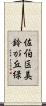 佐伯区美
鈴が丘緑